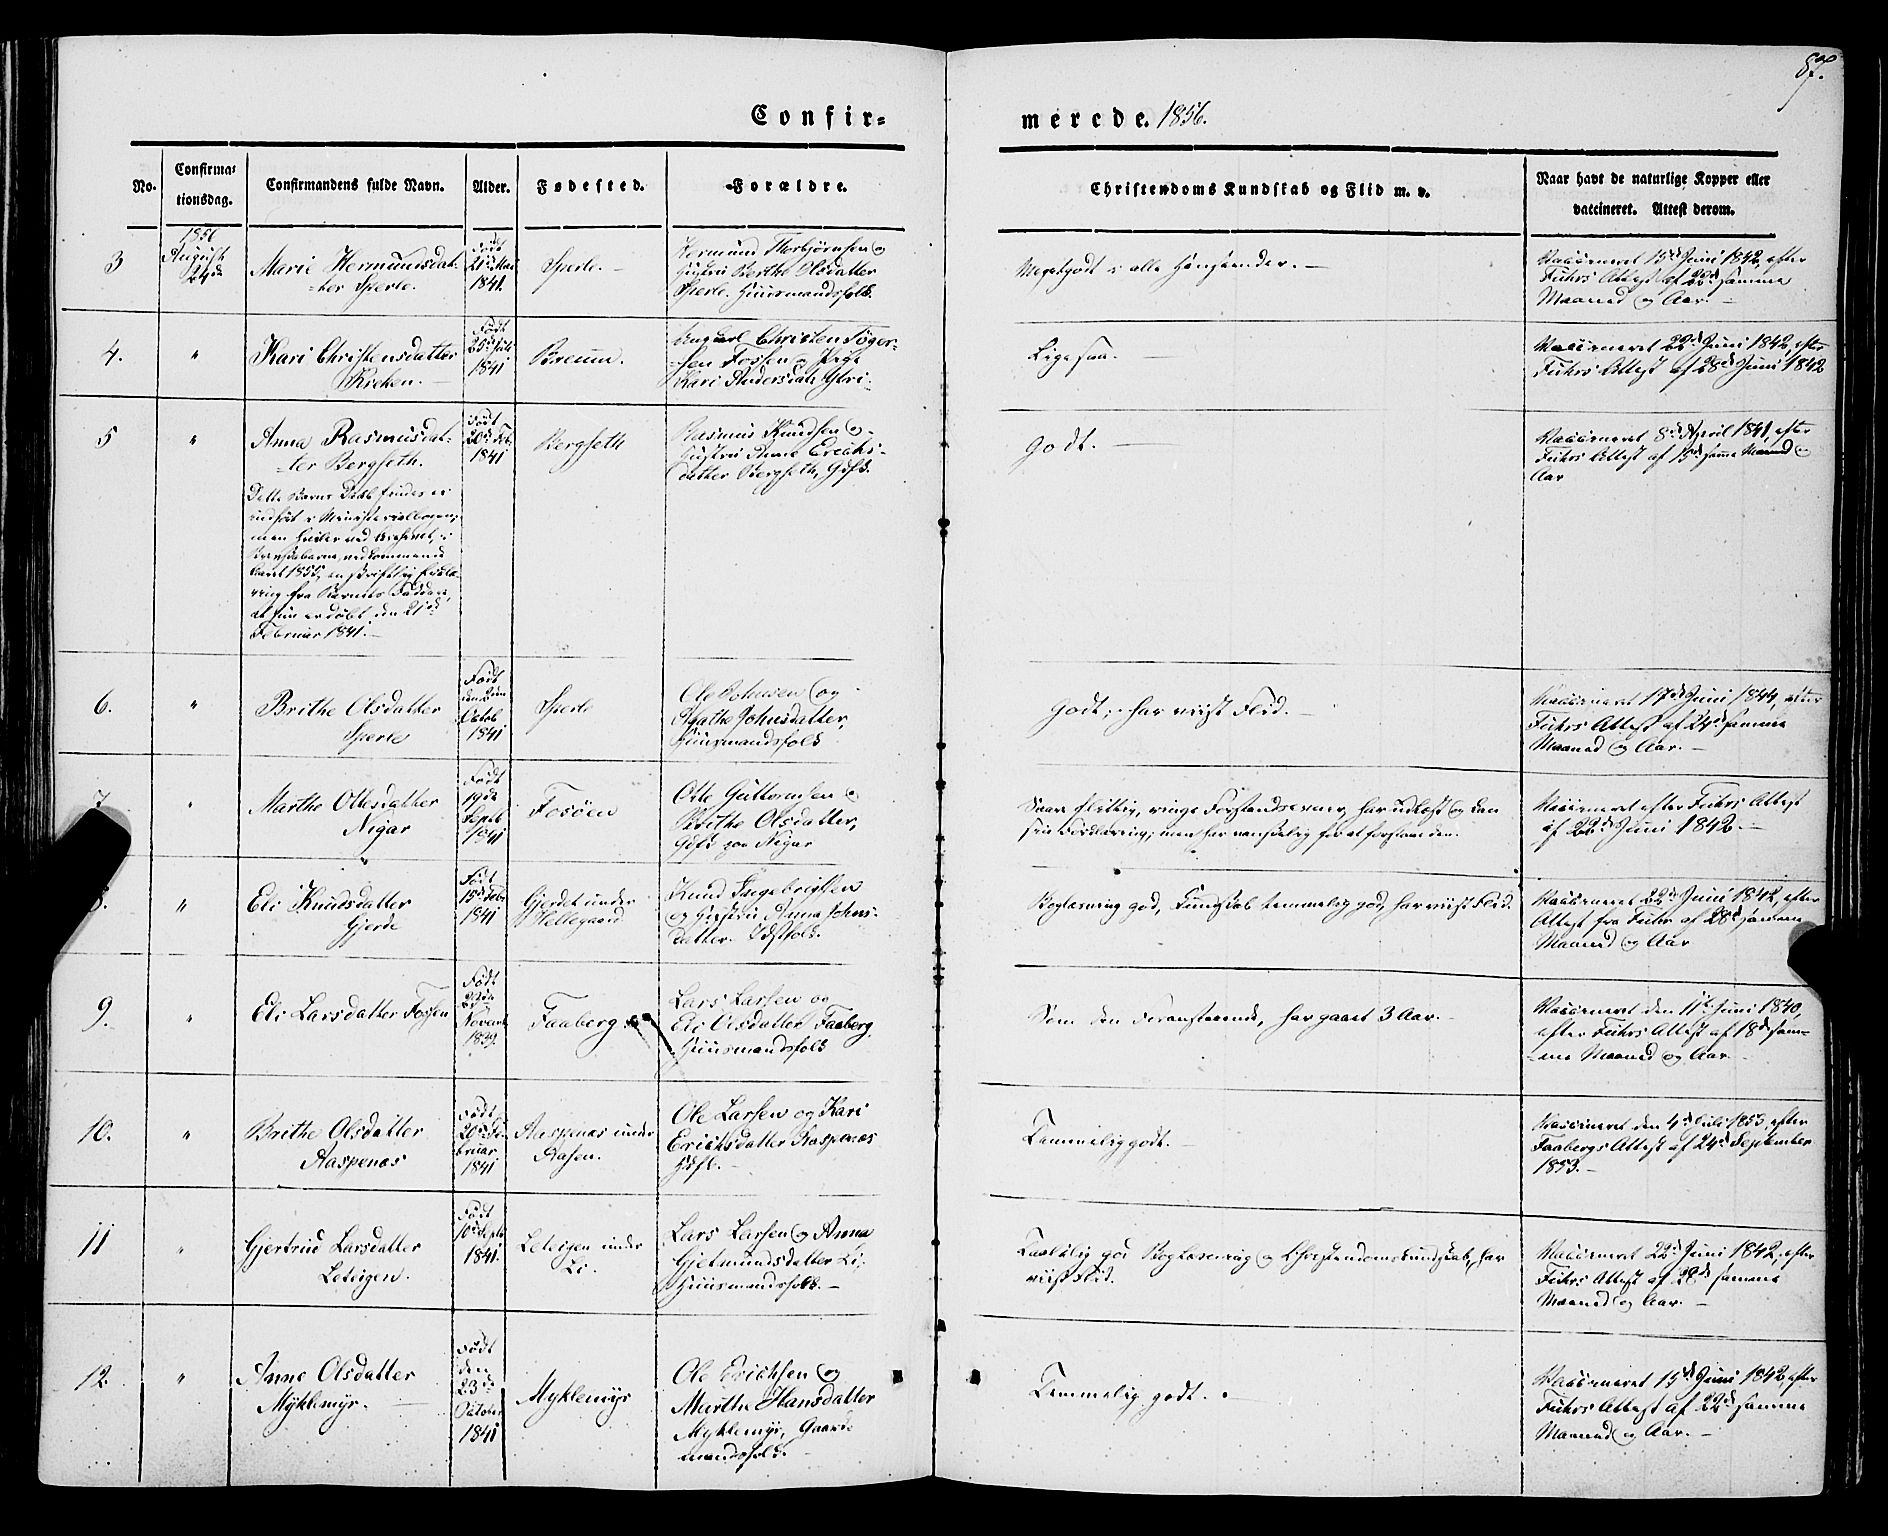 87.
Confir=
merede. 1856.
No.
Confirma=
tionsdag.
Confirmandens fulde Navn.
Alder.
Fødested.
Forældre.
Christendoms Kundskab og Flid m. v.
Naar havt de naturlige Kopper eller
vaccineret. Attest derom.
3
1856
August
24de
Marie Hermundsdat-
-ter Sperle.
Født
21de Mai
1841.
Sperle. —
Hermund Thorbjørnsen og
Hustru Berthe Olsdatter
Sperle. Huusmandsfolk.
Megetgodt i alle Henseender. —
Vaccineret 15de Juni 1842, efter
Fuhrs Attest af 22de samme
Maaned og Aar. —
4.
"
Kari Christensdatter
Kirken. —
Født
25de Juli
1841
Breum.
Ungkarl Christen
-sen Fossen og Pige
Kari Andersdatr
Ligesaa. —
Vaccineret 22de Juni 1842, efter
Fuhrs Attest af 28de Juni 1842
5
"
Anna Rasmusdat-
-ter Bergseth.
Dette Barns Daab findes ei
indført i Ministerialbogen;
men
vedkommende
Aaret 1855, en skriftlig Erklæ-
ring fra Barnets Faddere,
at hun er døbt den 21de
Februar 1841. —
Født
20de Feb.
1841
Bergseth
Rasmus Knudsen og
Hustru Anna Erichs-
datter Bergseth, Gdfk.
Godt. —
Vaccineret 8de April 1841, efter
Fuhrs Attest af 15de samme Maaned og
Aar
6.
"
Brithe Olsdatter
Sperle
Født
den 2den
Octob
1841
Sperle
Ole Johnsen og
Agathe Johnsdatter,
Huusmandsfolk
Godt; har viist Flid. —
Vaccineret 17de Juni 1844, efter
Fuhrs Attest af 24de samme
Maaned og Aar. —
7.
"
Marthe Ottesdatter
Nigar
Født
19de
Septb
1841
Fosöen
Otte Guttormsen og
Brithe Olsdatter,
Gdfk paa Nigar
Svare flittig, ringe Forstandsevner, har udlæst og kan
sin Forklaring; men har vanskelig for at forstaae den.
Vaccineret efter Fuhrs Attest
af 22de Juni 1842. —
8.
"
Eli Knudsdatter
Gjerde
Født
15de
1841
Gjerdet under
Hellegaard
Knud Ingebrigtsen
og Hustru Anna Johns-
datter.
Boglæsning god, Kundskab temmelig god, har viist Flid.
Vaccineret 22de Juni 1842, efter
Attest fra Fuhr af 28de samme
Maaned og Aar
9.
"
Eli Larsdatter Fossen
Født
22de
Novemb
1839.
Faaberg
Lars Larsen og
Eli Olsdatter Faaberg.
Huusmandsfolk
Som den Foranstaaende, har gaaet 3 Aar. —
Vaccineret den 11te Juni 1840,
efter Fuhrs Attest af 18de sam-
-me Maaned og Aar. —
10.
"
Brithe Olsdatter
Aaspenæs
Født
20de Fe-
bruar
1841
Aaspenæs under
Aasen.
Ole Larsen og Kari
Erichsdatter Aaspenæs
Gdfk. —
Temmelig godt. —
Vaccineret den 4de Juli 1853, efter
Faabergs Attest af 24de September
1853. —
11
"
Gjertrud Larsdatter
Leteigen.
Født
10de Septb
1841.
Leteigen under
Li.
Lars Larsen og Anna
Gjetmundsdatter Li,
Huusmandsfolk. —
Taalelig god Boglæsning og Christendomskundskab, har
viist Flid.
Vaccineret 22de Juni 1842, efter
Fuhrs Attest af 28de samme
Maaned og Aar. —
12.
"
Anne Olsdatter
Myklemyr. —
Født
den
23de
October
1841
Myklemyr
Ole Erichsen og
Marthe Hansdatter
Myklemyr, Gaard-
mandsfolk.
Temmelig godt. —
Vaccineret 15de Juni 1842, efter
Fuhrs Attest af 22de samme
Maaned og Aar. —